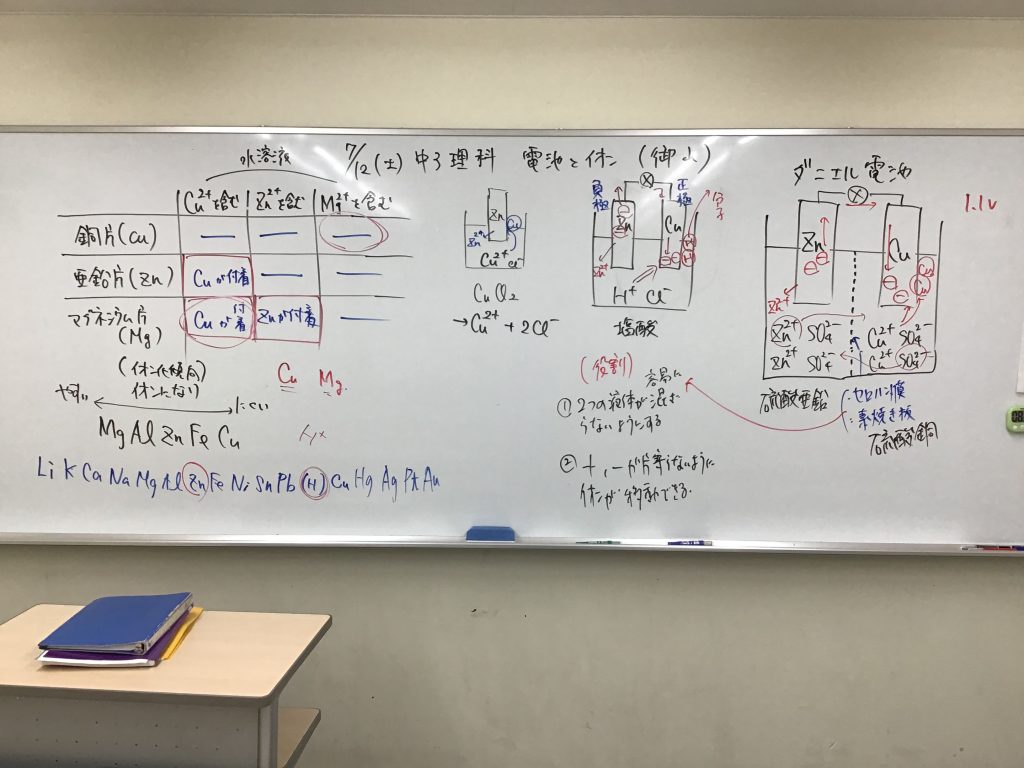 7/12(土) 中3理科 電池とイオン
水溶液
Cu²⁺を含む Zn²⁺を含む Mg²⁺を含む
銅片(Cu) — — —
亜鉛片(Zn) Cuが付着 — —
マグネシウム片(Mg) Cuが付着 Znが付着 —
(イオンに傾向)
イオンになり
やすい にくい
Cu Mg
Mg Al Zn Fe Cu
Li K Ca Na Mg Al Zn Fe Ni Sn Pb (H) Cu Hg Ag Pt Au
Zn
Zn²⁺
Cu
Cu²⁺ Cl⁻
→Cu²⁺ + 2Cl⁻
負極 正極
分子
Zn Cu
⊖ ⊖
Zn²⁺ ⊖ ⊖ H H
H⁺ Cl⁻
塩酸
(役割)
容易に
① 2つの液体が混ざ
らないようにする
② +,−が片寄らないように
イオンが移動できる.
ダニエル電池
1.1v
Zn Cu
⊖ ⊖ ⊖ ⊖ Cu Cu
Zn²⁺
Zn²⁺ SO₄²⁻ Cu²⁺ SO₄²⁻
Zn²⁺ SO₄²⁻ Cu²⁺ SO₄²⁻
硫酸亜鉛
セロハン膜
素焼き板
硫酸銅